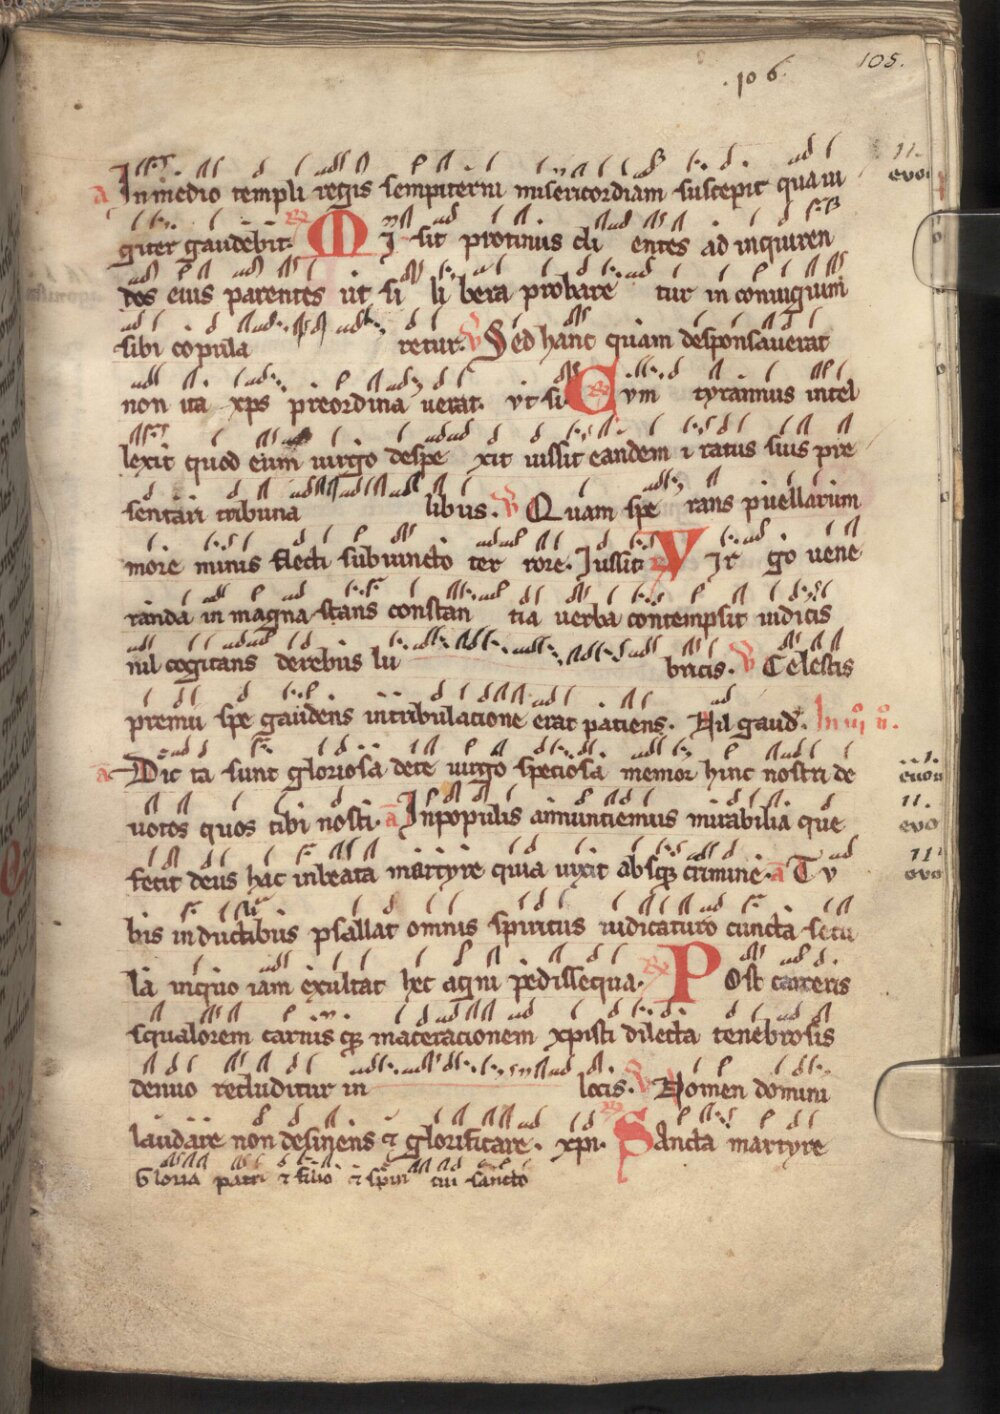 .106.
105.
a In medio templi regis sempiterni misericordiam suscepit qua iu
giter gaudebit. R Misit protinus cli entes ad inquiren
dos eius parentes ut si li bera probare tur in coniugium
sibi copula retur. V Sed hanc quam desponsaverat
non ita xps preordina verat. vt si R Cvm tyrannus intel
lexit quod eum virgo despe xit iussit eandem i ratus suis pre
sentari tribuna libus. V Quam spe rans puellarum
more minis flecti subiuncto ter rore. Iussit R Vir go vene
randa in magna stans constan tia verba contempsit iudicis
nil cogitans de rebus lu bricis. V Celestis
premii spe gaudens in tribulacione erat patiens. Nil gaud. In iii n.
a Dic ta sunt gloriosa de te virgo speciosa memor hinc nostri de
votos quos tibi nosti. a In populis annuntiemus mirabilia que
fecit deus hac in beata martyre quia vixit absq; crimine. a Tv
bis in ductibus psallat omnis spiritus iudicaturo cuncta secu
la in quo iam exultat hec agni pedissequa. R Post carceris
squalorem carnis q; maceracionem xpisti dilecta tenebrosis
denuo recluditur in locis. V Nomen domini
laudare non desinens & glorificare. xpi. R Sancta martyre
Gloria patri & filio & spiri tui sancto